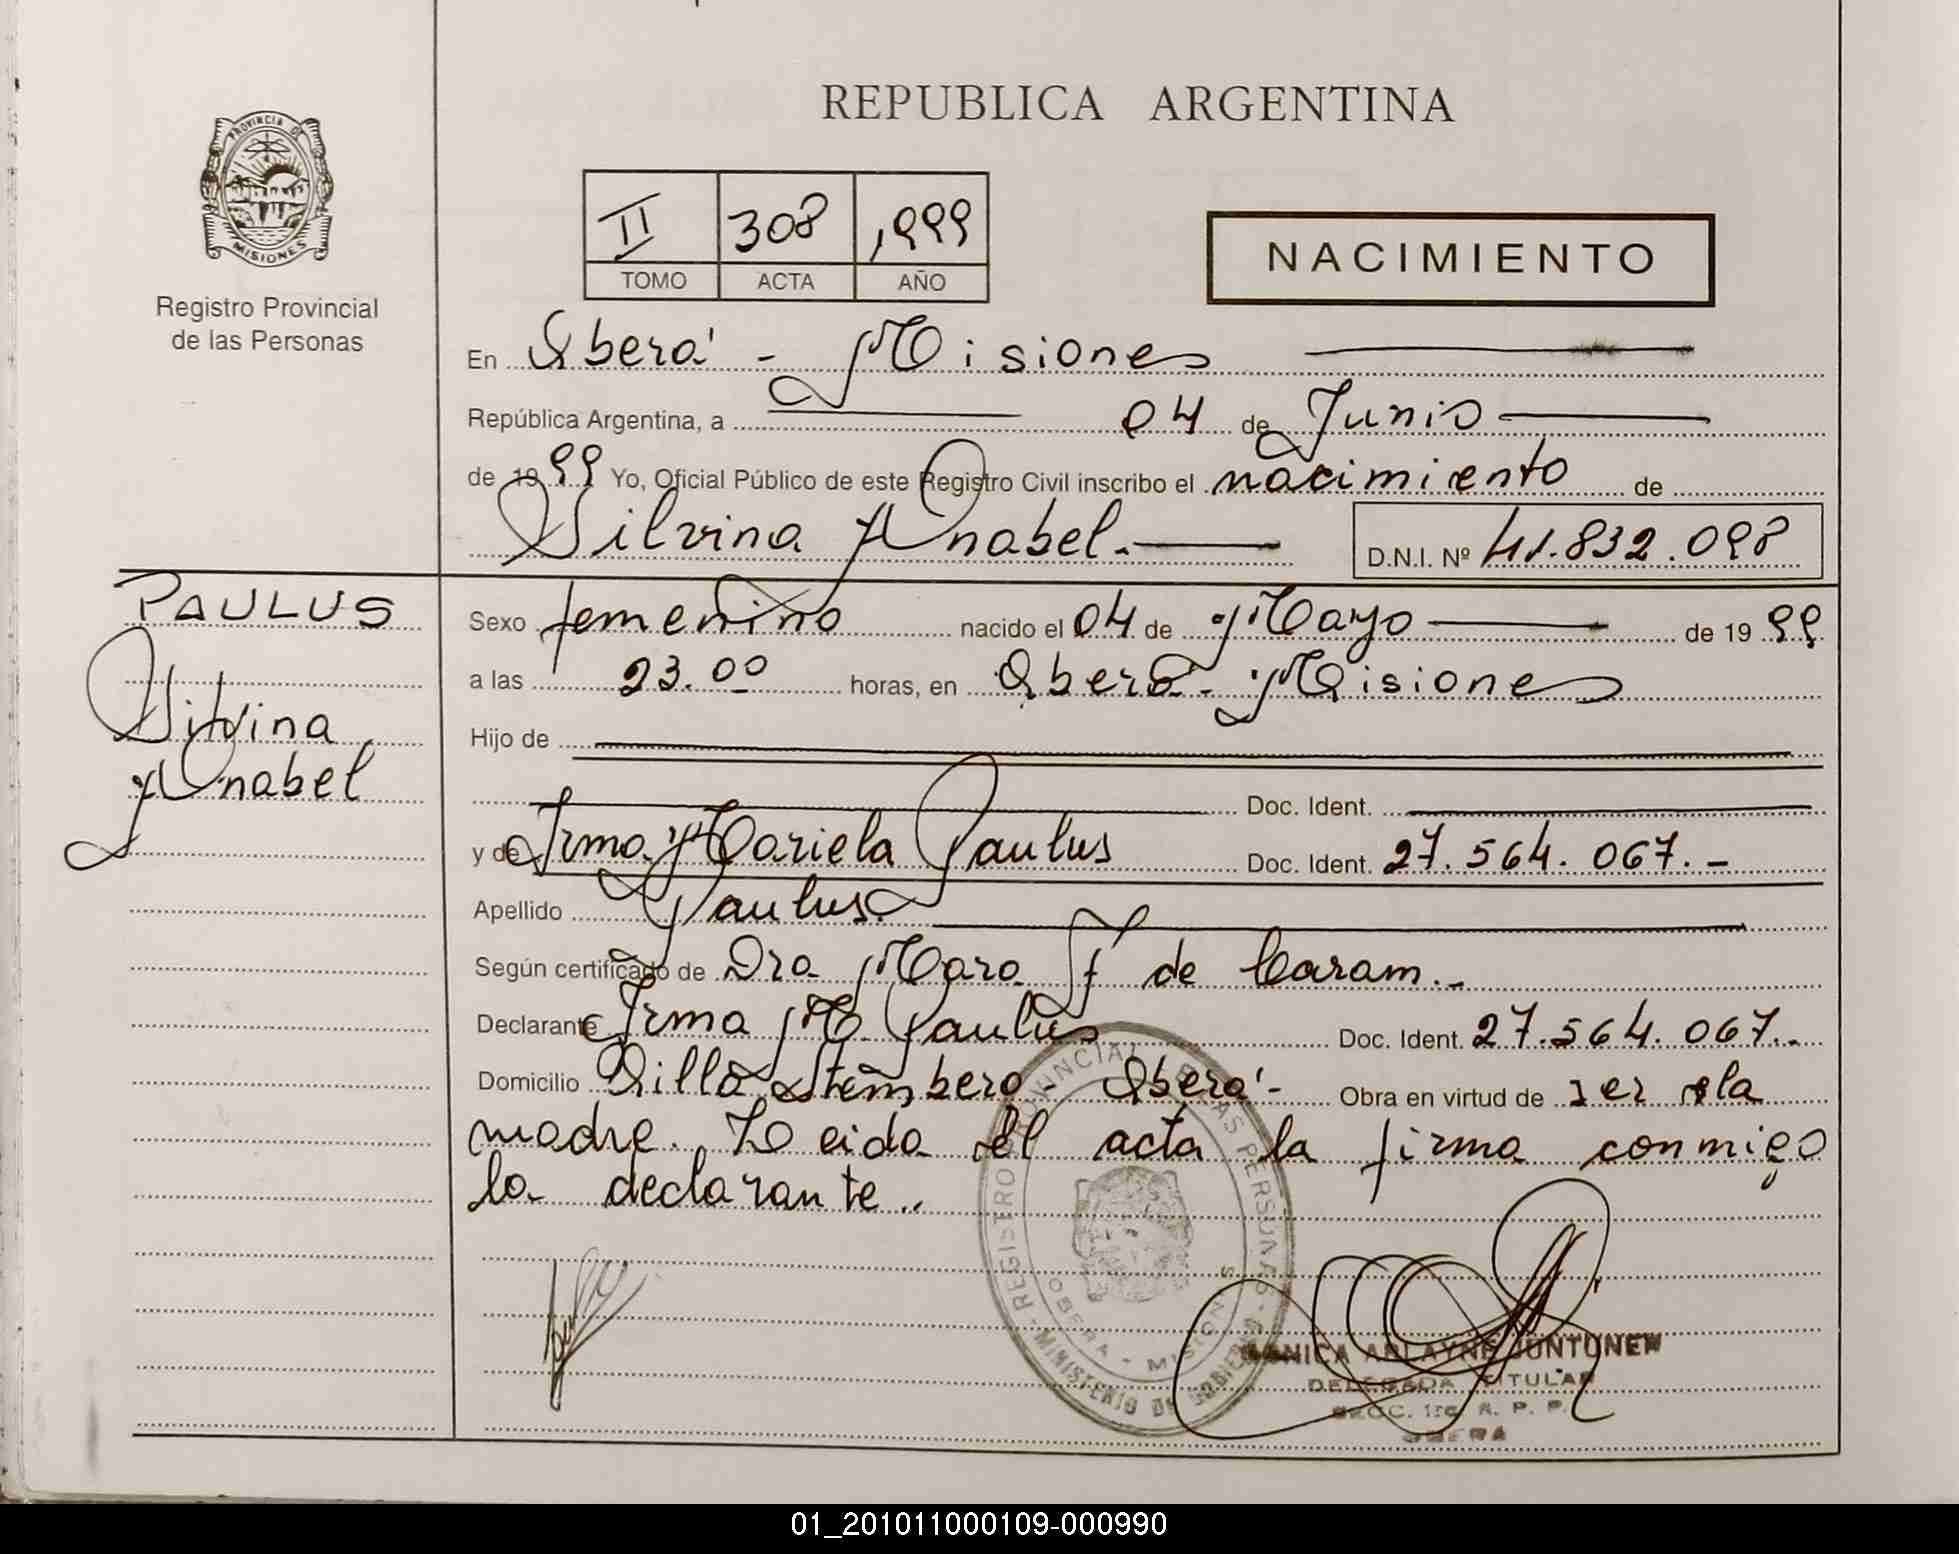 PROVINCIA DE
MISIONES
Registro Provincial
de las Personas
REPUBLICA ARGENTINA
II 308 1999
TOMO ACTA AÑO
NACIMIENTO
En Oberá - Misiones
República Argentina, a 04 de Junio
de 1999 Yo, Oficial Público de este Registro Civil inscribo el nacimiento de
Silvina Anabel.- D.N.I. Nº 41.832.098
PAULUS
Silvina
Anabel
Sexo femenino nacido el 04 de Mayo de 1999
a las 23.00 horas, en Oberá - Misiones
Hijo de
Doc. Ident.
y de Irma Mariela Paulus Doc. Ident. 27.564.067.-
Apellido Paulus.
Según certificado de Dra Mara F de Caram.-
Declarante Irma M. Paulus Doc. Ident. 27.564.067.-
Domicilio Villa Stemberg - Oberá - Obra en virtud de ser la
madre. Leida el acta la firma conmigo
la declarante..
REGISTRO PROVINCIAL DE LAS PERSONAS - MINISTERIO DE GOBIERNO
OBERA - MISIONES
MONICA ARLAYNE JUNTUNEN
DELEGADA TITULAR
SECC. 1ra R. P. P.
OBERA
01_201011000109-000990